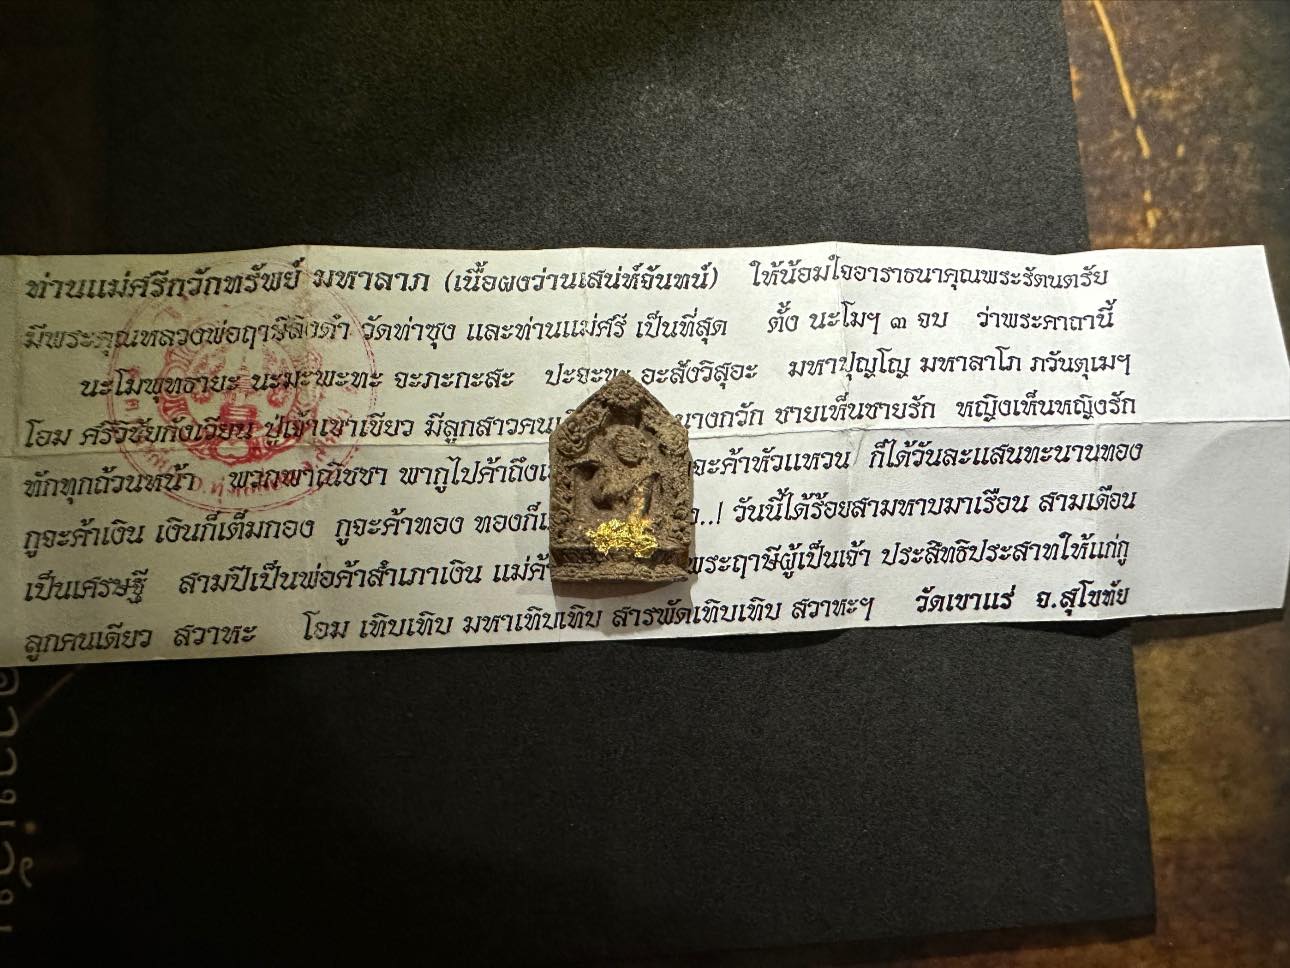 ท่านแม่ศรีกวักทรัพย์ มหาลาภ (เนื้อผงว่านเสน่ห์จันทน์) ให้น้อมใจอาราธนาคุณพระรัตนตรัย
มีพระคุณหลวงพ่อฤาษีลิงดำ วัดท่าซุง และท่านแม่ศรี เป็นที่สุด ตั้ง นะโมฯ ๓ จบ ว่าพระคาถานี้
นะโมพุทธายะ นะมะพะทะ จะภะกะสะ ปะจะขะ อะสังวิสุอะ มหาปุญโญ มหาลาโภ ภวันตุเมฯ
โอม ศรีวิชัยกังเวียน ปู่เจ้าเขาเขียว มีลูกสาวคน นางกวัก ชายเห็นชายรัก หญิงเห็นหญิงรัก
ทักทุกถ้วนหน้า พวกพาณิชชา พากูไปค้าถึง จะค้าหัวแหวน ก็ได้วันละแสนทะนานทอง
กูจะค้าเงิน เงินก็เต็มกอง กูจะค้าทอง ทองก็ ..! วันนี้ได้ร้อยสามหาบมาเรือน สามเดือน
เป็นเศรษฐี สามปีเป็นพ่อค้าสำเภาเงิน แม่ค้ พระฤาษีผู้เป็นเจ้า ประสิทธิประสาทให้แก่กู
ลูกคนเดียว สวาหะ โอม เทิบเทิบ มหาเทิบเทิบ สารพัดเทิบเทิบ สวาหะฯ วัดเขาแร่ จ.สุโขทัย